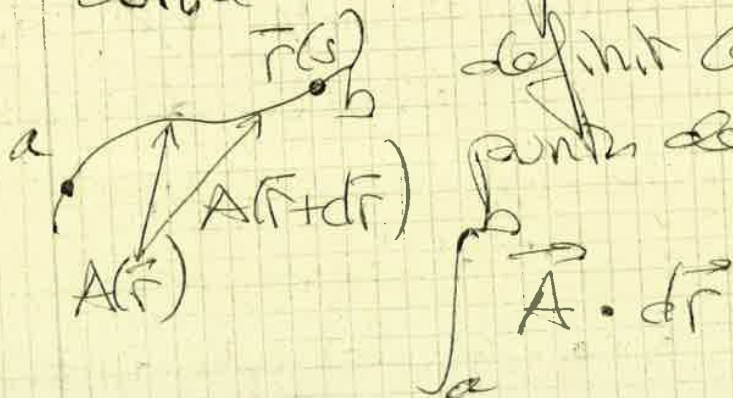 r̄(s) definir
a b
punts de
A(r̄+dr̄)
A(r̄)
∫ₐᵇ A⃗ · dr⃗